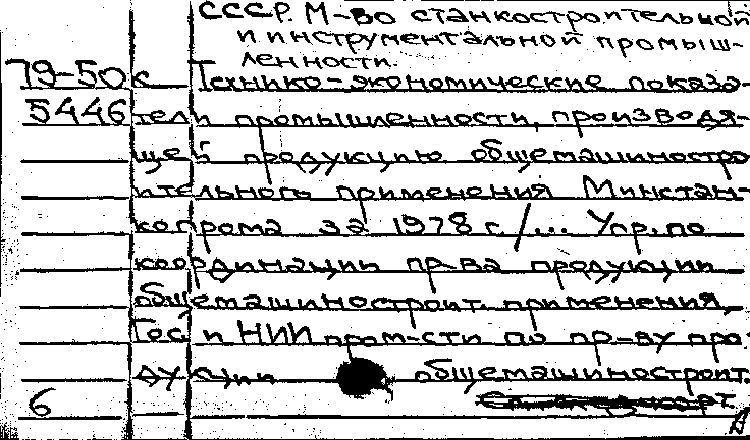 СССР. М-во станкостроительной
и инструментальной промыш-
ленности.
79-50к Технико-экономические показа-
5446 тели промышленности, производя-
щей продукцию общемашиностро
ительного применения Минстан-
копрома за 1978 г/... Упр. по
координации пр-ва продукции
общемашиностроит. применения,
Гос НИИ пром-сти по пр-ву про
дукции общемашиностроит.
6